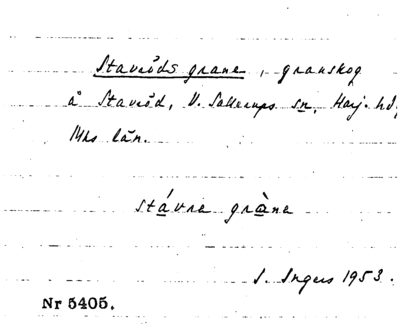 Stavröds grane, granskog
å Stavröd, V. Sallerups sn, Harj. hd,
Mhs län.
stávre gràne
I. Ingers 1953.
Nr 5405.